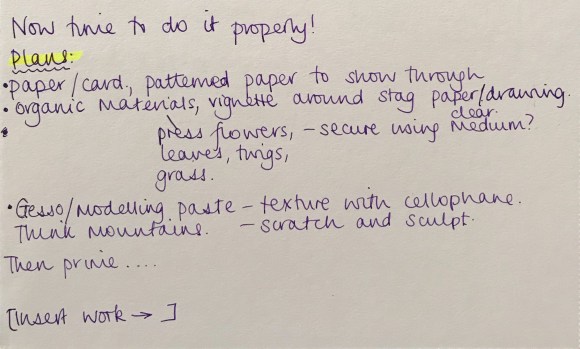 Now time to do it properly!
Plans:
• paper/card, patterned paper to show through
• organic materials, vignette around stag paper/drawing.
press flowers, – secure using clear medium?
leaves, twigs,
grass.
• Gesso/Modelling paste – texture with cellophane.
Think mountains. – scratch and sculpt.
Then prime ....
[Insert work → ]